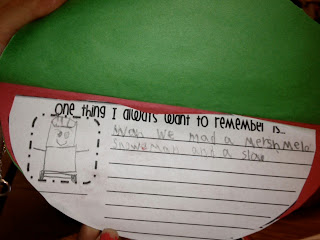 one thing I always want to remember is...
Wah we mad a mershmelo
snowman and a slav